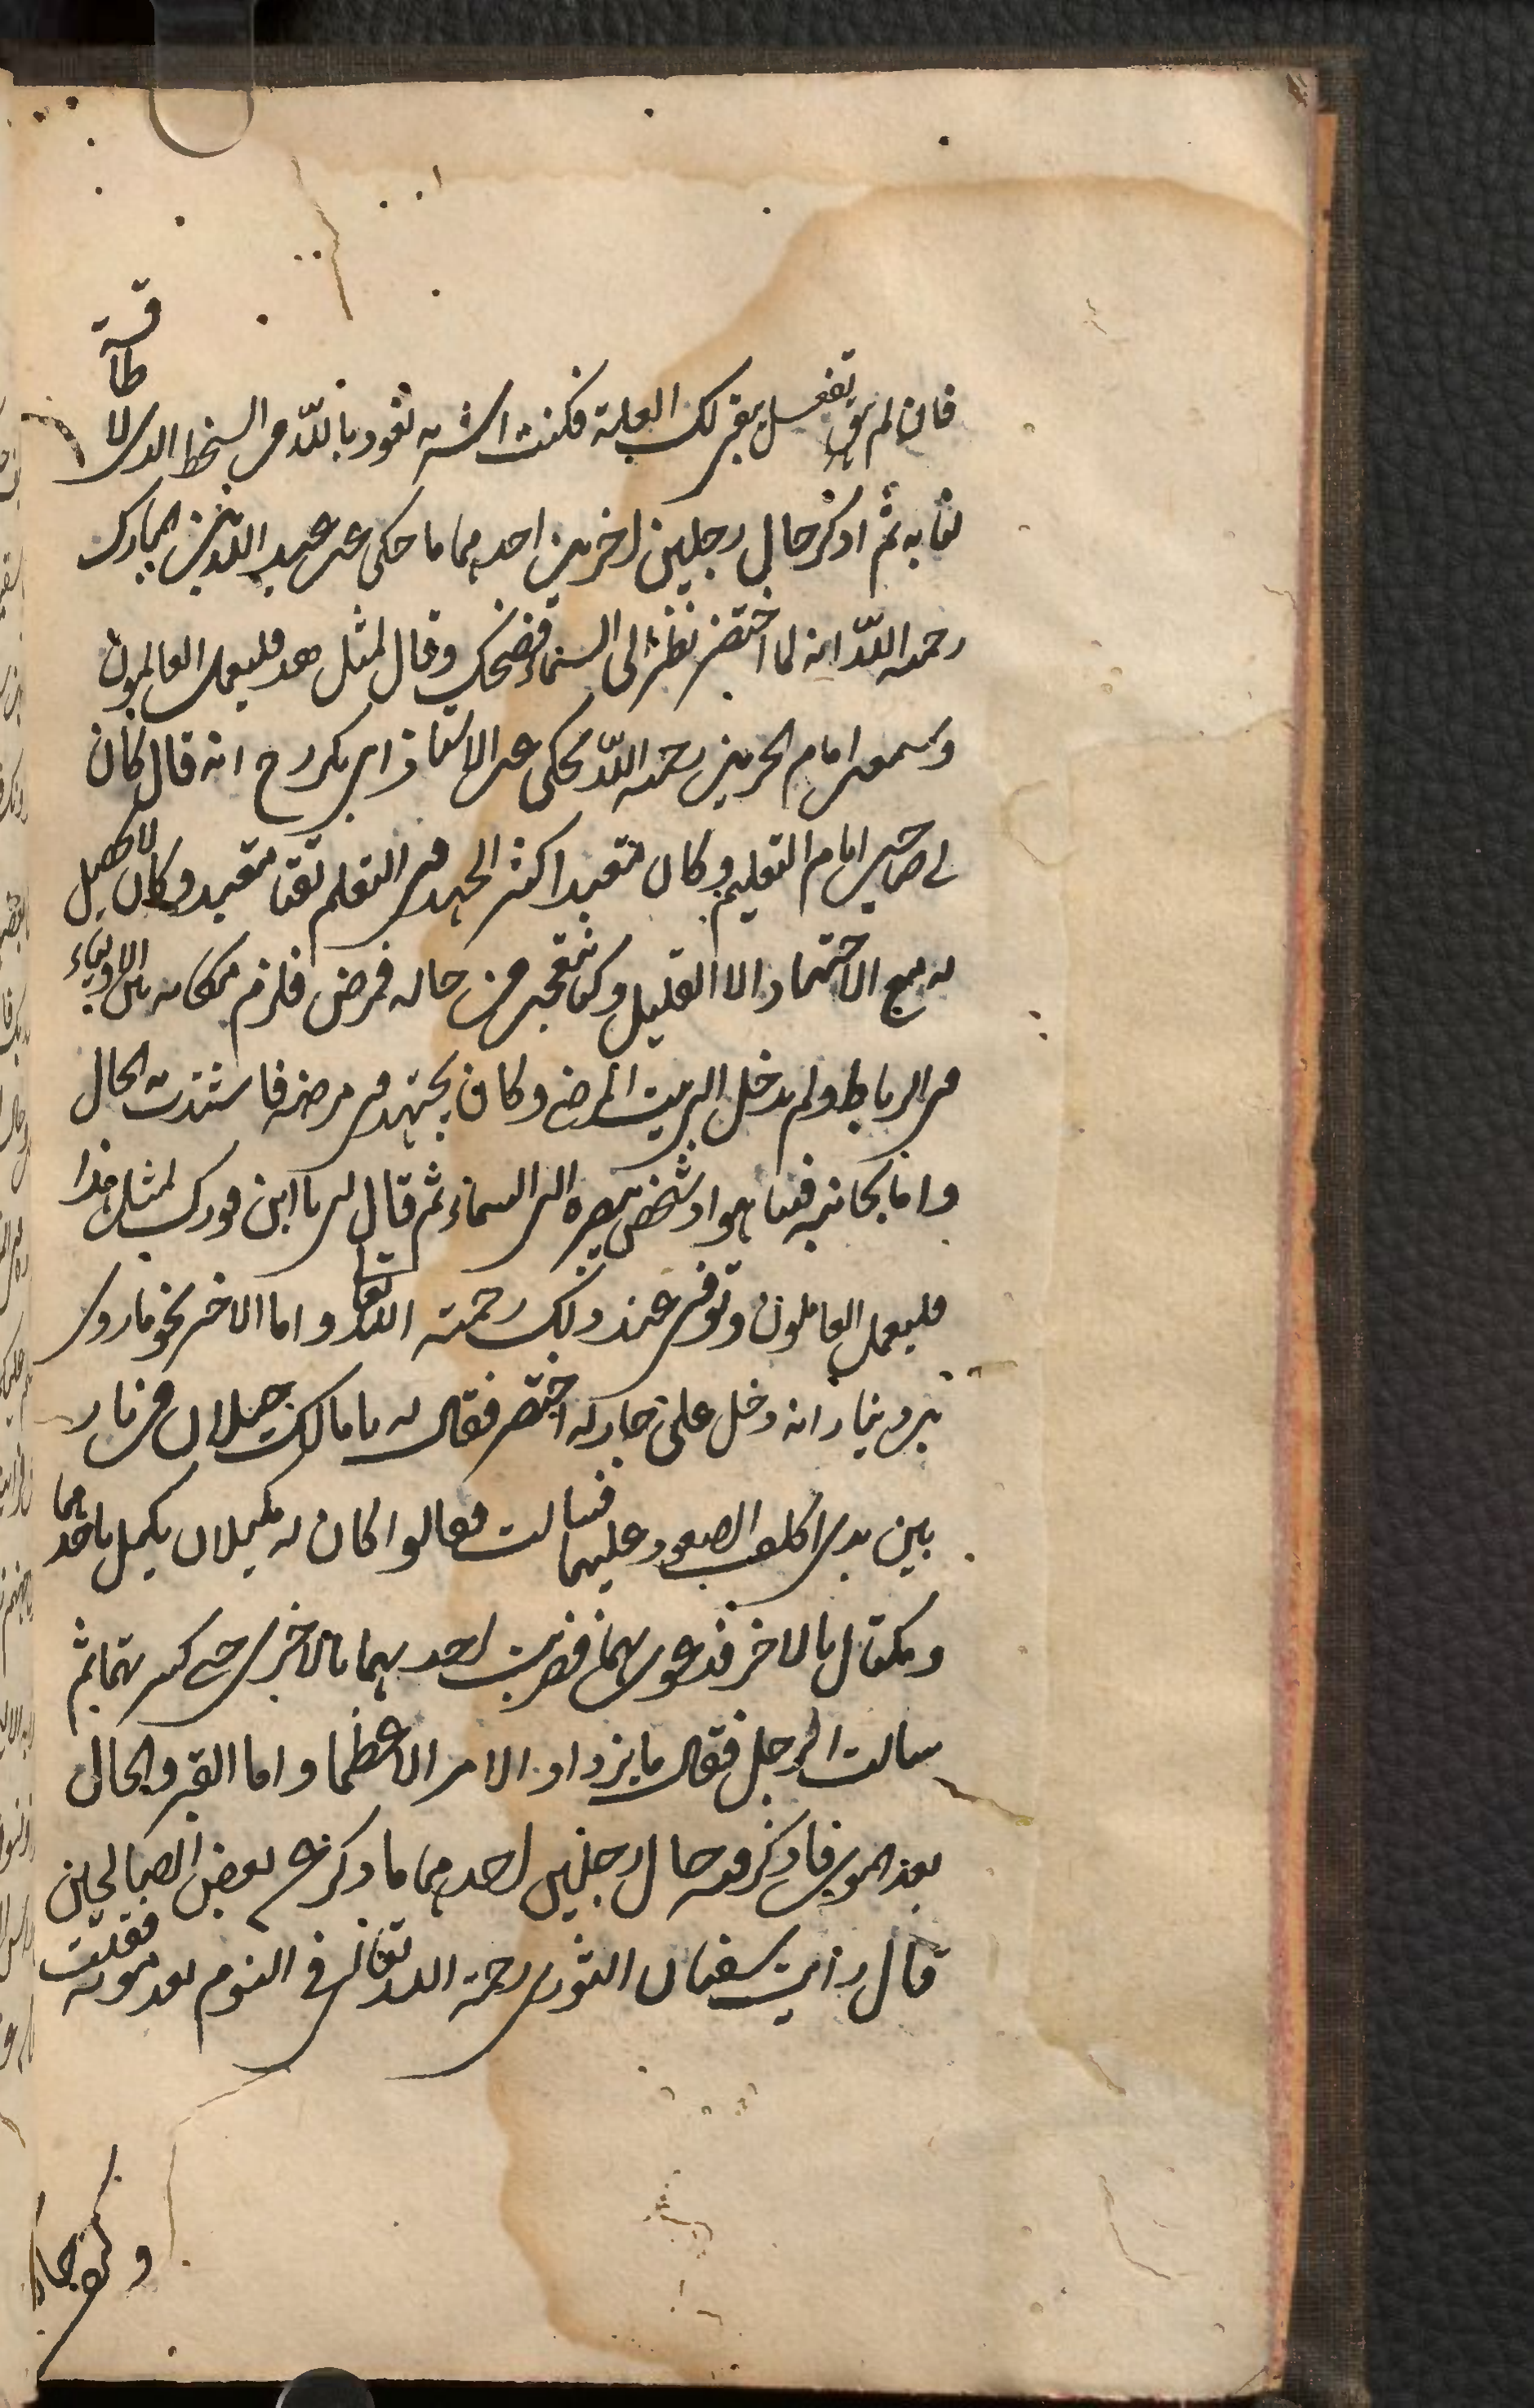 فان لم تفعل يبق لك العلة فكنت اشربه نعوذ بالله من السخط الذى لا طاقة
لنا به ثم اذكر حال رجلين اخرين احدهما ما حكى عن عبد الله بن المبارك
رحمه الله انه لما احتضر نظر الى السماء فضحك وقال لمثل هذ فليعمل العالمون
وسمعت امام الحرمين رحمه الله يحكى عن الاستاذ ابى بكر رح انه قال كان
لى صاحب امام التعليم وكان متعبدا كثير الجهد فى التعلم تقيا متعبد وكان لا يحصل
له مع الاجتهاد الا القليل وكنا نتعجب من حاله فمرض فلزم مكانه بين الاولياء
فى الرباط ولم يدخل البيت المرضى وكان يجتهد فى مرضه فاشتدت به الحال
وانا بجانبه فبينا هو اذ شخص ببصره الى السماء ثم قال لى يا ابن فورك لمثل هذا
فليعمل العاملون وتوفى عند ذلك رحمته الله تعا واما الاخر نحو ما روى
بن دينار انه دخل على جار له احتضر فقال له يا مالك جبلان من نار
بين يدى اكلف الصعود عليهما فسالت فقالوا كان له مكيلان يكيل باحدهما
ويكتال بالاخر فدعوى بهما فضربت احدهما بالاخرى حتى كسرتهما ثم
سالت الرجل فقال ما يزداد الامر الا عظما واما القبر والحال
بعد الموت فاذكر فيه حال رجلين احدهما ما ذكر عن بعض الصالحين
قال رأيت سفيان الثورى رحمة الله تعالى فى النوم بعد موته فقلت